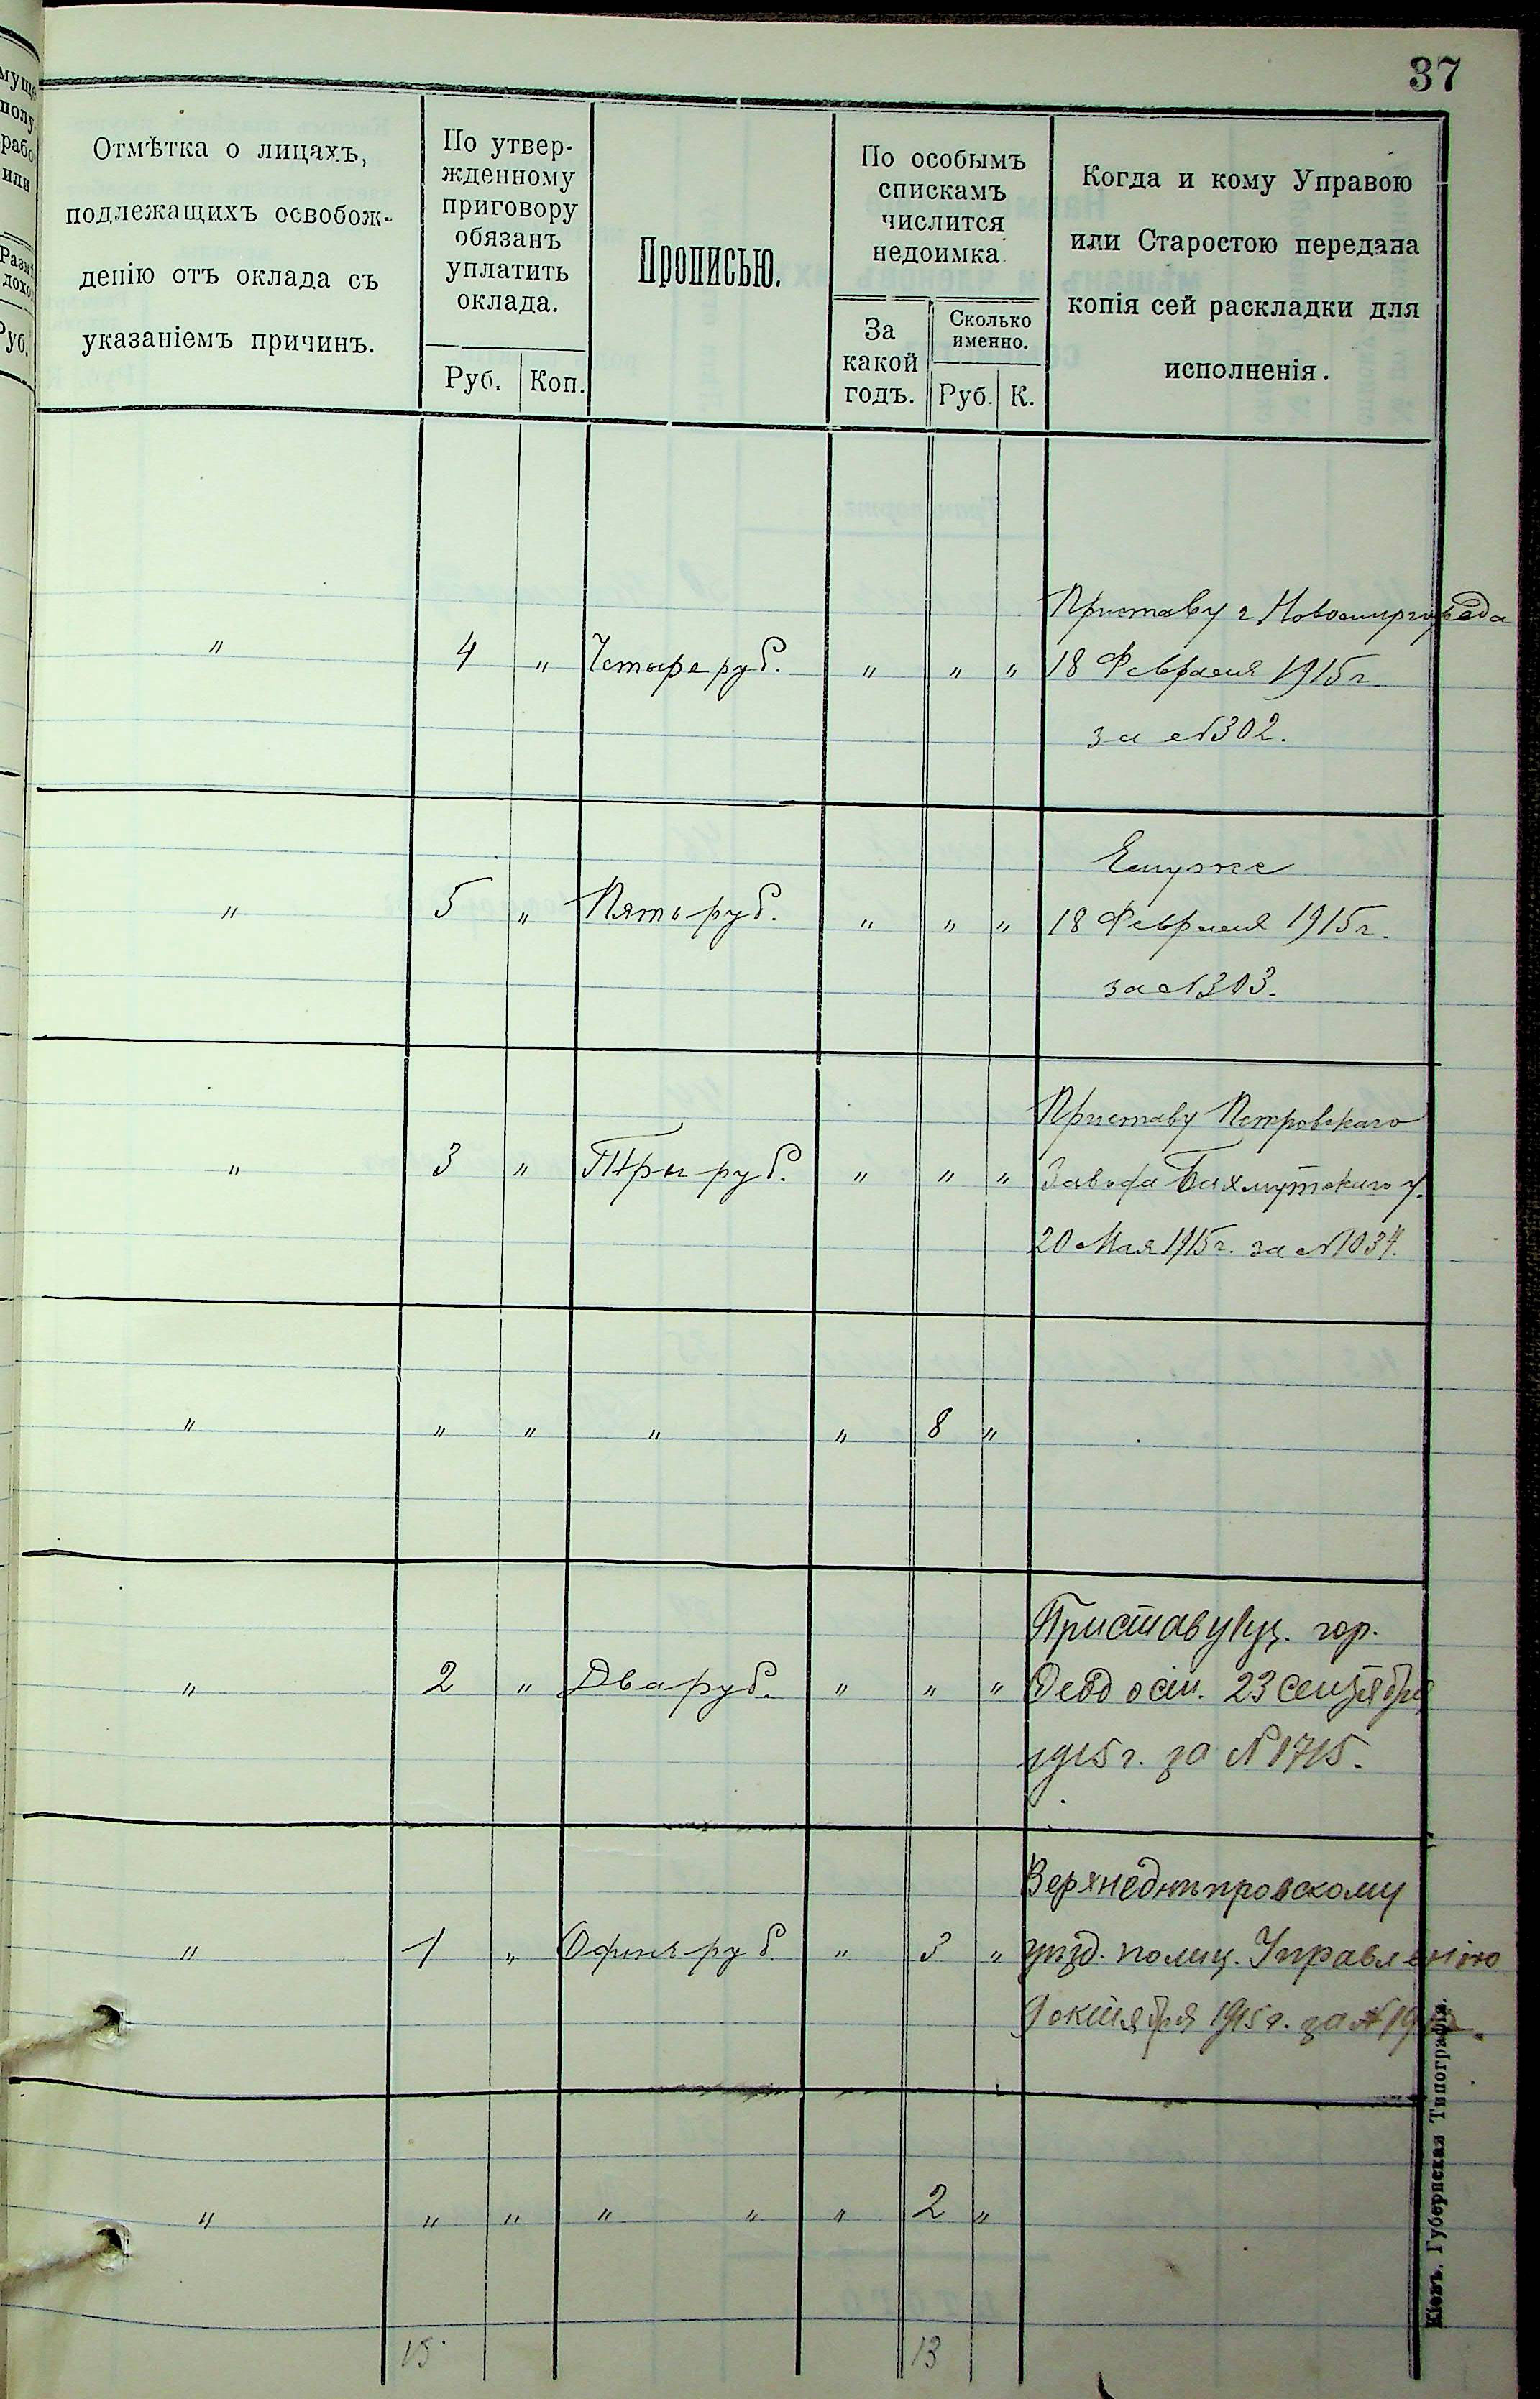 37
муще
полу
рабо
или
Разм
дохо
Руб.
Отмѣтка о лицахъ,
подлежащихъ освобож-
денію отъ оклада съ
указаніемъ причинъ.
По утвер-
жденному
приговору
обязанъ
уплатить
оклада.
Руб. Коп.
Прописью.
По особымъ
спискамъ
числится
недоимка.
За
какой
годъ.
Сколько
именно.
Руб. К.
Когда и кому Управою
или Старостою передана
копія сей раскладки для
исполненія.
Приставу г Новомиргорода
" 4 " Четыре руб. " " " 18 Февраля 1915 г.
за №302.
Ему же
" 5 " Пять руб. " " " 18 Февраля 1915 г.
за №303.
Приставу Петровскаго
" 3 " Три руб. " " " Завода Бахмутскаго у.
20 Мая 1915 г. за №1034.
" " " " " 8 "
Приставу гор.
" 2 " Два руб. " " " Феодосіи. 23 сентября
1915 г. за №1715.
Верхнеднѣпровскому
" 1 " Одинъ руб. " 3 " уѣзд. полиц. Управленію
9 октября 1915 г. за №
" " " " " " 2 "
15 13
Кіевъ. Губернская Типографія.